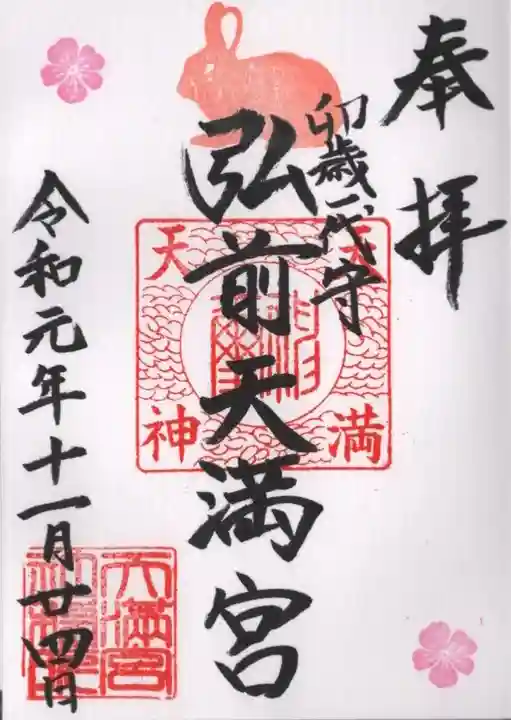 奉拝
卯歳一代守
弘前天満宮
天満
天神
令和元年十一月廿四日
天満宮